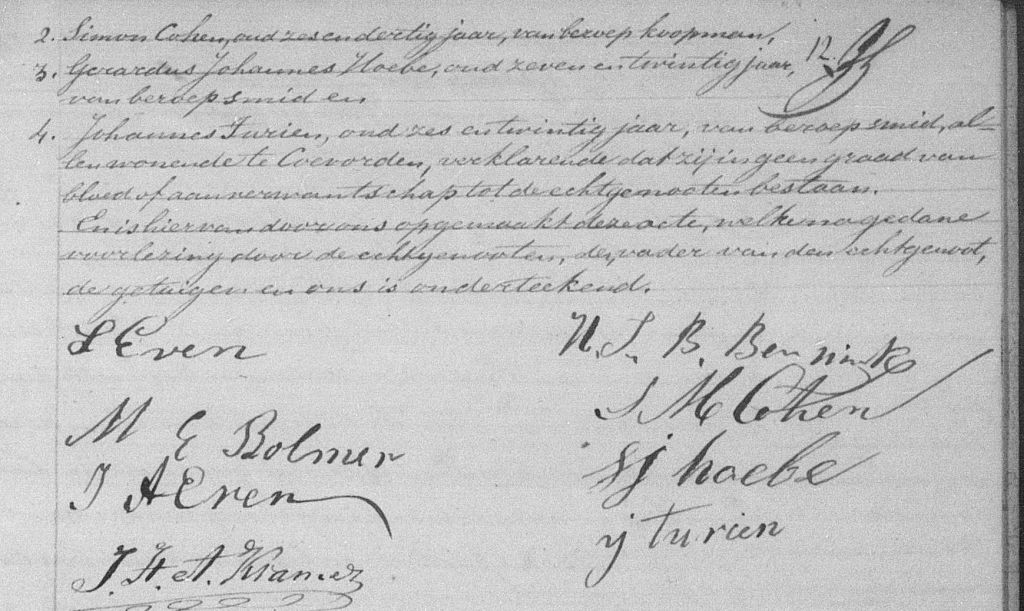 2. Simon Cohen, oud zes en dertig jaar, van beroep koopman,
3. Gerardus Johannes Hoebe, oud zeven en twintig jaar, 12.
van beroep smid en
4. Johannes Turien, oud zes en twintig jaar, van beroep smid, al-
len wonende te Coevorden, verklarende dat zij in geen graad van
bloed of aanverwantschap tot de echtgenooten bestaan.
En is hiervan door ons opgemaakt deze acte, welke na gedane
voorlezing door de echtgenooten, de vader van den echtgenoot,
de getuigen en ons is onderteekend.
L Even
H. J. B. Bennink
S M Cohen
M E Bolmer
J A Even
G j hoebe
j turien
J. H. A. Kramer